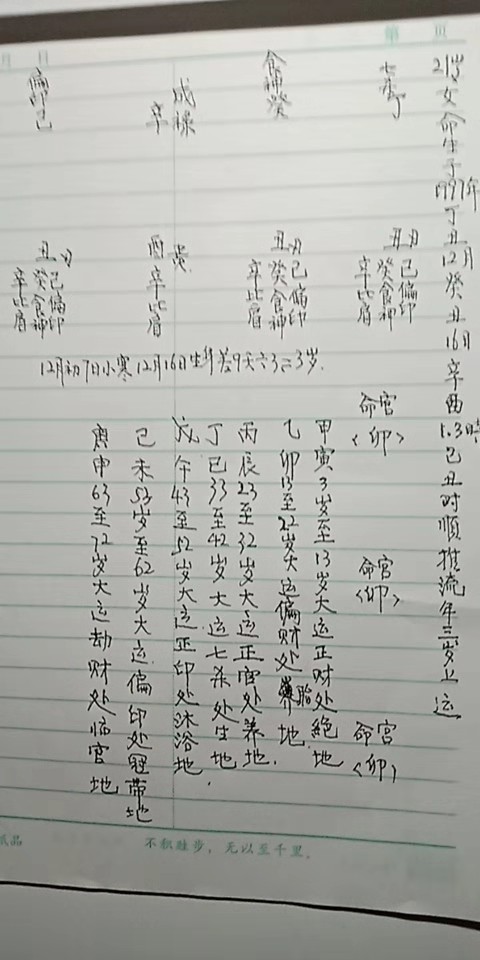 第 页
月 日
21岁女命生于1997年丁丑12月癸丑16日辛酉1.3時己丑时順推流年三岁上运
七杀丁
食神癸
戌禄
辛
偏印己
丑月
己偏印
癸食神
辛比肩
丑月
己偏印
癸食神
辛比肩
酉
辛比肩
丑月
己偏印
癸食神
辛比肩
12月初7日小寒12月16日生
命宫
<卯>
命宫
<卯>
命宫
<卯>
甲寅3岁至13岁大运正财处絶地
乙卯13至22岁大运偏财处胎地.
丙辰23至32岁大运正官处养地.
丁巳33至42岁大运七杀处生地.
戊午43至52岁大运正印处沐浴地
己未53岁至62岁大运偏印处冠带地
庚申63至72岁大运劫财处临官地
纸品
不积跬步，无以至千里.